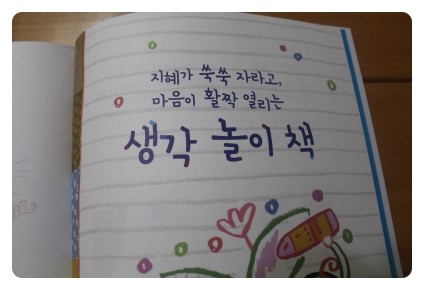 지혜가 쑥쑥 자라고,
마음이 활짝 열리는
생각 놀이 책